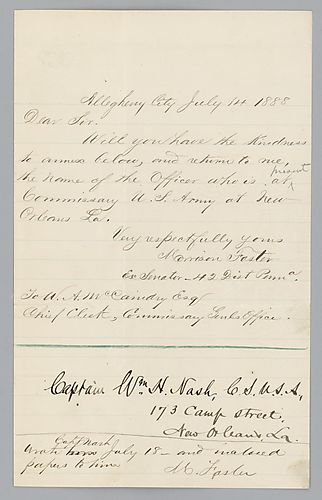 Allegheny City July 14 1888
Dear Sir.
Will you have the kindness
to annex below, and return to me,
present
the name of the Officer who is at
Commissary U. S. Army at New
Orleans La.
Very respectfully yours
Morrison Foster
Ex Senator 42 Dist Penna.
To W. A. McCandry Esq
Chief Clerk, Commissary Genls Office.
Captain Wm H. Nash, C.S.U.S.A,
173 Camp street,
New Orleans, La.
Capt Nash
wrote him July 18 - and inclosed
papers to him
M. Foster